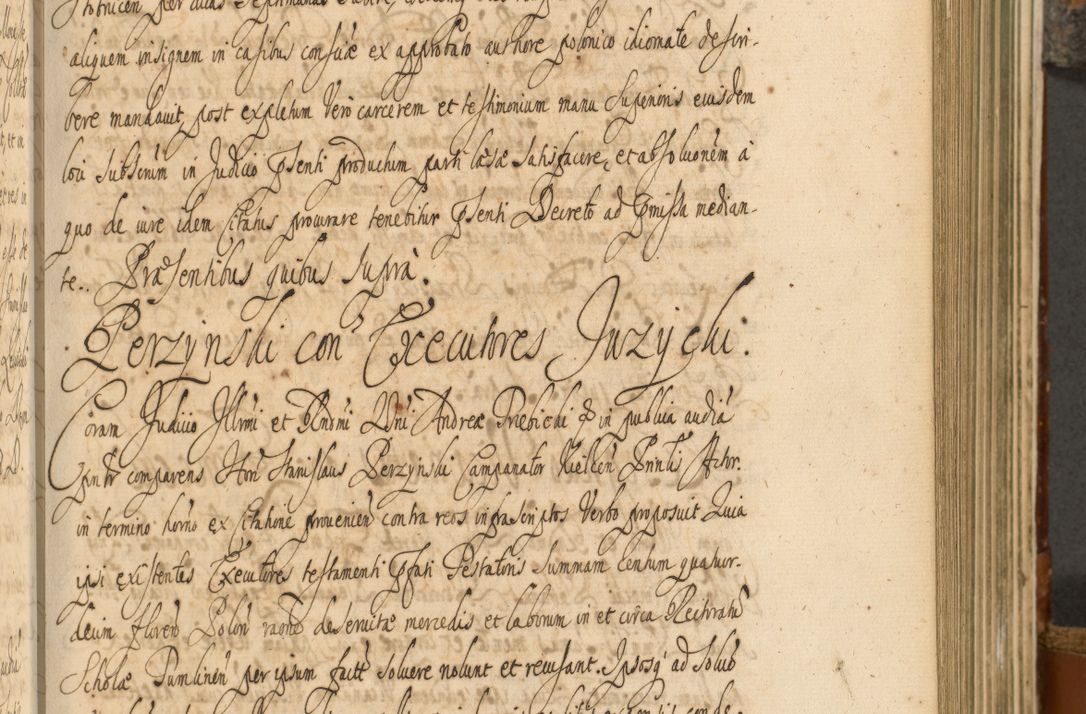 aliquem insignem in casibus conscitæ ex approbato authore polonico idiomate descri-
bere mandavit, post expletum vero carcerem et testimonium manu Superioris eiusdem
loci subscriptum in Judicio pnti productum parti læsæ satisfacere, et absolutionem à
quo de iure idem Citatus procurare tenebitur pnti Decreto ad præmissa median-
te.. Præsentibus quibus suprà.
Perzynski con Executores Juzycki.
Coram Judicio Illrmi et Rndmi Dni Andreæ Trebicki &c in publica audiã
comparens Hon Stanislaus Perzynski Campanator Kielceñ Prinlis Actor.
in termino horno ex Citatione provenieñ contra reos infrascriptos verbo proposuit Quia
ipsi existentes Executores testamenti pfati Testatoris summam centum quatuor-
decim floreñ Poloñ raone deservitæ mercedis et laborum in et circa
Scholæ per ipsum fact solvere nolunt et recusant. Ipsosq ad